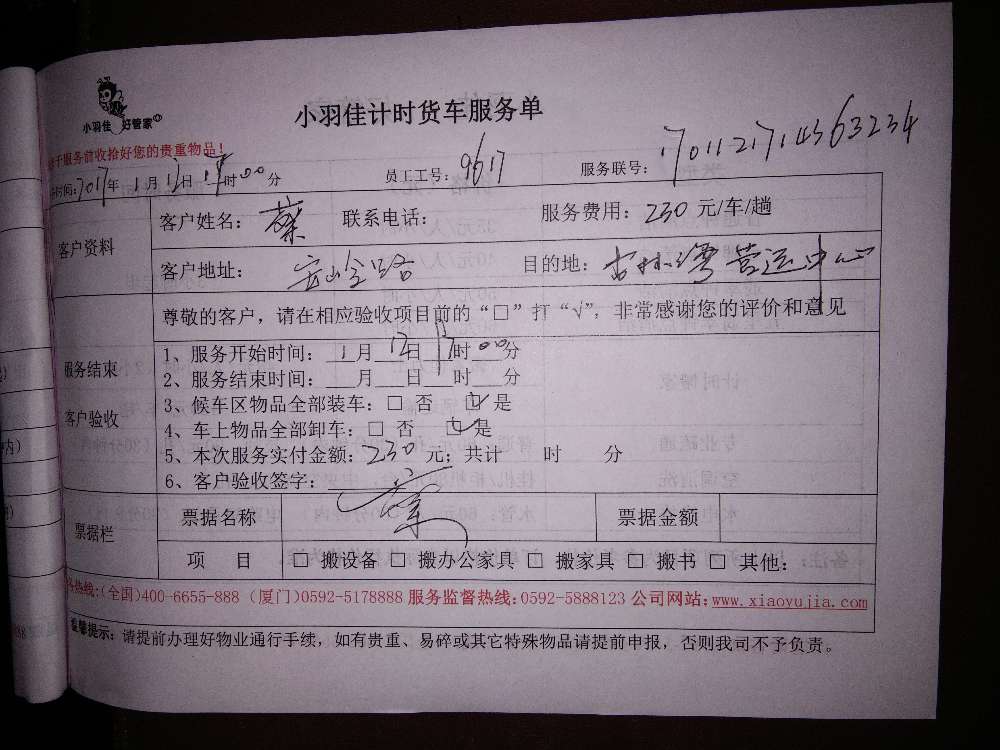 小羽佳 好管家
小羽佳计时货车服务单
于服务前收拾好您的贵重物品!
时间:2017年1月12日17时00分 员工工号:9617 服务联号:1701121714363234
客户资料
客户姓名: 蔡 联系电话: 服务费用:230元/车/趟
客户地址: 安岭路 目的地:杏林湾营运中心
尊敬的客户,请在相应验收项目前的“□”打“√”,非常感谢您的评价和意见
服务结束
客户验收
1、服务开始时间: 1月12日17时00分
2、服务结束时间:___月___日___时___分
3、候车区物品全部装车:□ 否 ☑ 是
4、车上物品全部卸车:□ 否 ☑ 是
5、本次服务实付金额:230元;共计 时 分
6、客户验收签字: 蔡
票据栏
票据名称 票据金额
项 目 □ 搬设备 □ 搬办公家具 □ 搬家具 □ 搬书 □ 其他:
务热线:(全国)400-6655-888 (厦门)0592-5178888 服务监督热线:0592-5888123 公司网站:www.xiaoyujia.com
温馨提示:请提前办理好物业通行手续,如有贵重、易碎或其它特殊物品请提前申报,否则我司不予负责。